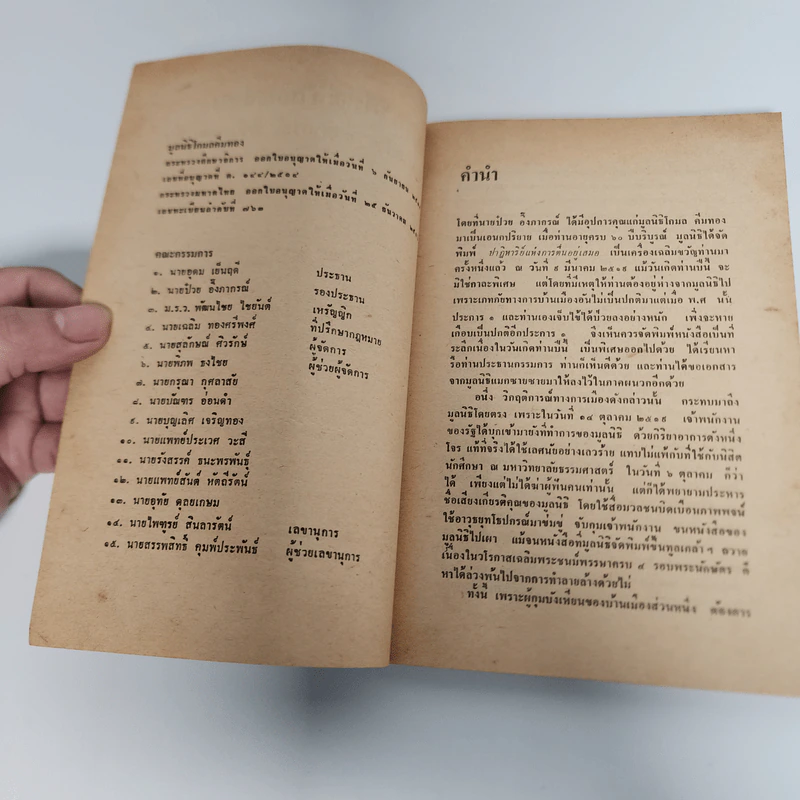 มูลนิธิโกมลคีมทอง
กระทรวงศึกษาธิการ ออกใบอนุญาตให้เมื่อวันที่ ๖ กันยายน
เลขที่อนุญาตที่ ต. ๑๔๔/๒๕๑๔
กระทรวงมหาดไทย ออกใบอนุญาตให้เมื่อวันที่ ๒๕ ธันวาคม
เลขทะเบียนลำดับที่ ๗๖๓
คณะกรรมการ
๑. นายอุดม เย็นฤดี ประธาน
๒. นายป๋วย อึ๊งภากรณ์ รองประธาน
๓. ม.ร.ว. พัฒนไชย ไชยันต์ เหรัญญิก
๔. นายเฉลิม ทองศรีพงศ์ ที่ปรึกษากฎหมาย
๕. นายสุลักษณ์ ศิวรักษ์ ผู้จัดการ
๖. นายพิภพ ธงไชย ผู้ช่วยผู้จัดการ
๗. นายกรุณา กุศลาสัย
๘. นายบัณฑร อ่อนดำ
๙. นายบุญเลิศ เจริญทอง
๑๐. นายแพทย์ประเวศ วะสี
๑๑. นายรังสรรค์ ธนะพรพันธุ์
๑๒. นายแพทย์สันต์ หัตถีรัตน์
๑๓. นายอุทัย ดุลยเกษม
๑๔. นายไพฑูรย์ สินลารัตน์ เลขานุการ
๑๕. นายสรรพสิทธิ์ คุมพ์ประพันธ์ ผู้ช่วยเลขานุการ
คำนำ
โดยที่นายป๋วย อึ๊งภากรณ์ ได้มีอุปการคุณแก่มูลนิธิโกมล คีมทอง
มาเป็นเอนกปริยาย เมื่อท่านอายุครบ ๖๐ ปีบริบูรณ์ มูลนิธิได้จัด
พิมพ์ ปาฏิหาริย์แห่งการตื่นอยู่เสมอ เป็นเครื่องเฉลิมขวัญท่านมา
ครั้งหนึ่งแล้ว ณ วันที่ ๙ มีนาคม ๒๕๑๙ แม้วันเกิดท่านปีนี้ จะ
มิใช่วาละพิเศษ แต่โดยที่มีเหตุให้ท่านต้องอยู่ห่างจากมูลนิธิไป
เพราะเภทภัยทางการบ้านเมืองอันไม่เป็นปกติมาแต่เมื่อ พ.ศ นั้น
ประการ ๑ และท่านเองเจ็บไข้ได้ป่วยลงอย่างหนัก เพิ่งจะหาย
เกือบเป็นปกติอีกประการ ๑ จึงเห็นควรจัดพิมพ์หนังสือเป็นที่
ระลึกเนื่องในวันเกิดท่านปีนี้ เป็นพิเศษออกไปด้วย ได้เรียนหา
รือท่านประธานกรรมการ ท่านก็เห็นดีด้วย และท่านได้ขอเอกสาร
จากมูลนิธิแมกซายซายมาให้ลงไว้ในภาคผนวกอีกด้วย
อนึ่ง วิกฤติการณ์ทางการเมืองดังกล่าวนั้น กระทบมาถึง
มูลนิธิโดยตรง เพราะในวันที่ ๑๔ ตุลาคม ๒๕๑๙ เจ้าพนักงาน
ของรัฐได้บุกเข้ามายังที่ทำการของมูลนิธิ ด้วยกิริยาอาการดังหนึ่ง
โจร แท้ที่จริงได้ใช้เลศนัยอย่างเลวร้าย แทบไม่แพ้กับที่ใช้กับนิสิต
นักศึกษา ณ มหาวิทยาลัยธรรมศาสตร์ ในวันที่ ๖ ตุลาคม ก็ว่า
ได้ เพียงแต่ไม่ได้ฆ่าผู้ฟันคนเท่านั้น แต่ก็ได้พยายามประหาร
ชื่อเสียงเกียรติคุณของมูลนิธิ โดยใช้สื่อมวลชนบิดเบือนภาพพจน์
ใช้อาวุธยุทโธปกรณ์มาข่มขู่ จับกุมเจ้าพนักงาน ขนหนังสือของ
มูลนิธิไปเผา แม้จนหนังสือที่มูลนิธิจัดพิมพ์ขึ้นทูลเกล้า ฯ ถวาย
เนื่องในวโรกาสเฉลิมพระชนม์พรรษาครบ ๔ รอบพระนักษัตร ก็
หาได้ล่วงพ้นไปจากการทำลายล้างด้วยไม่
ทั้งนี้ เพราะผู้กุมบังเหียนของบ้านเมืองส่วนหนึ่ง ต้องการ